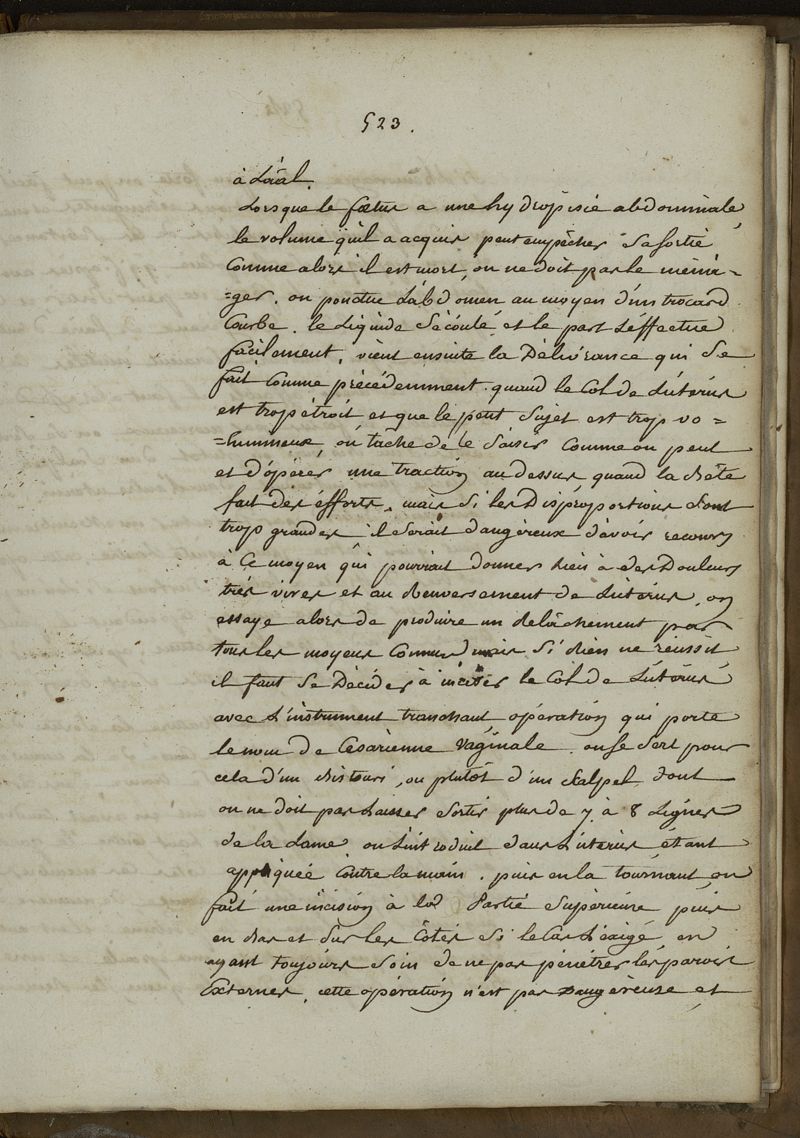 523.
à Láal.
Lorsque le fœtus a une hydropisie abdominale
le volume qu'il a acquis peut empêcher sa sortie
Comme alors il est mort, on ne doit pas le ména=
=ger. on ponctue L'abdomen au moyen d'un trocard
Courbe. le Liquide s'écoule et le part s'éffectue
facilement, vient ensuite la Délivrance qui se
fait Comme précédemment. quand le Col de Lutérus
est trop étroit et que le petit sujet est trop vo=
=lumineux, on tâche de le saisir Comme on peut
et d'opérer une traction au dessus quand la Bête
fait des éfforts. mais si les Disproportions sont
trop grandes il serait dangéreux d'avoir recours
à Ce moyen qui pourrait donner lieu à des Douleurs
très vives et au Renversement de Lutérus, on
essaye alors de produire un relâchement par
tous les moyens Connus mais si rien ne réussit
il faut se Décider à inciser le Col de Lutérus
avec L'instrument tranchant, opération qui porte
le nom de Césarienne Vaginale. on se sert pour
cela d'un Bistouri, ou plutôt d'un scalpel dont
on ne doit pas Laisser sortir plus de 7 à 8 Lignes
de la Lame on L'introduit dans Lutérus étant
appliquée Contre la main. puis en la tournant on
fait une incision à la Partie Supérieure puis
en bas et sur les Côtés si le Cas L'éxige, en
ayant toujours soin de ne pas pénétrer les parois
Externes. cette opération n'est pas Dangéreuse et